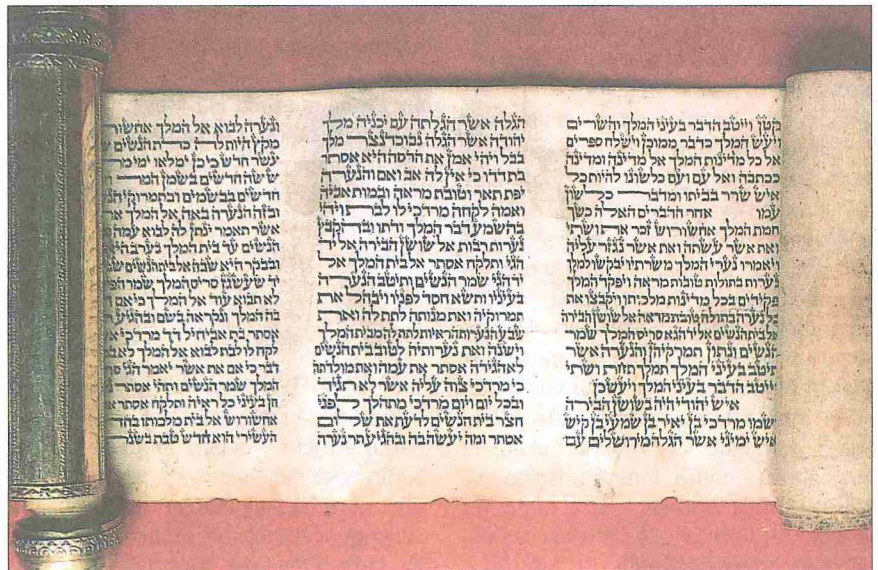 קטן וייטב הדבר בעיני המלך והשרים
ויעש המלך כדבר ממוכן וישלח ספרים
אל כל מדינות המלך אל מדינה ומדינה
ככתבה ואל עם ועם כלשונו להיות כל
איש שרר בביתו ומדבר כלשון
עמו אחר הדברים האלה כשך
חמת המלך אחשורוש זכר את ושתי
ואת אשר עשתה ואת אשר נגזר עליה
ויאמרו נערי המלך משרתיו יבקשו למלך
נערות בתולות טובות מראה ויפקד המלך
פקידים בכל מדינות מלכותו ויקבצו את
כל נערה בתולה טובת מראה אל שושן הבירה
אל בית הנשים אל יד הגא סריס המלך שמר
הנשים ונתון תמרקיהן והנערה אשר
תיטב בעיני המלך תמלך תחת ושתי
וייטב הדבר בעיני המלך ויעש כן
איש יהודי היה בשושן הבירה
ושמו מרדכי בן יאיר בן שמעי בן קיש
איש ימיני אשר הגלה מירושלים עם
הגלה אשר הגלתה עם יכניה מלך
יהודה אשר הגלה נבוכדנצר מלך
בבל ויהי אמן את הדסה היא אסתר
בת דדו כי אין לה אב ואם והנערה
יפת תאר וטובת מראה ובמות אביה
ואמה לקחה מרדכי לו לבת ויהי
בהשמע דבר המלך ודתו ובהקבץ
נערות רבות אל שושן הבירה אל יד
הגי ותלקח אסתר אל בית המלך אל
יד הגי שמר הנשים ותיטב הנערה
בעיניו ותשא חסד לפניו ויבהל את
תמרוקיה ואת מנותה לתת לה ואת
שבע הנערות הראיות לתת לה מבית המלך
וישנה ואת נערותיה לטוב בית הנשים
לא הגידה אסתר את עמה ואת מולדתה
כי מרדכי צוה עליה אשר לא תגיד
ובכל יום ויום מרדכי מתהלך לפני
חצר בית הנשים לדעת את שלום
אסתר ומה יעשה בה ובהגיע תר נערה
ונערה לבוא אל המלך אחשורו
מקץ היות לה כדת הנשים ש
עשר חדש כי כן ימלאו ימי מר
ששה חדשים בשמן המר
חדשים בבשמים ובתמרוקי הנ
ובזה הנערה באה אל המלך את
אשר תאמר ינתן לה לבוא עמה מ
הנשים עד בית המלך בערב היא
ובבקר היא שבה אל בית הנשים שנ
יד שעשגז סריס המלך שמר הפ
לא תבוא עוד אל המלך כי אם ח
בה המלך ונקראה בשם ובהגיע
אסתר בת אביחיל דד מרדכי א
לקח לו לבת לבוא אל המלך לא ב
דבר כי אם את אשר יאמר הגי סר
המלך שמר הנשים ותהי אסתר נ
חן בעיני כל ראיה ותלקח אסתר א
אחשורוש אל בית מלכותו בחד
העשירי הוא חדש טבת בשנת